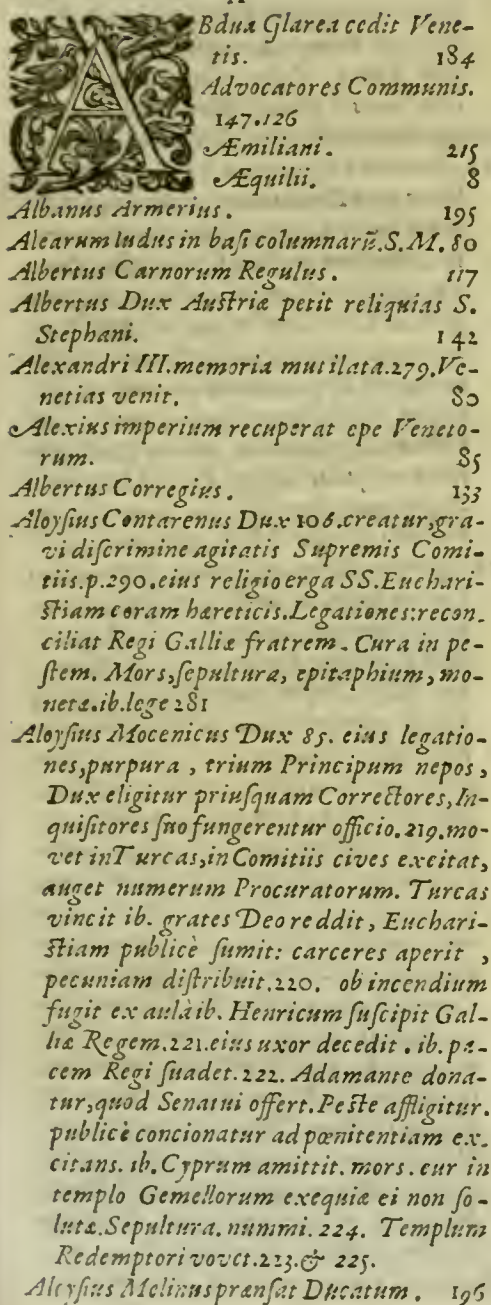 ABdua Glarea cedit Vene-
tis. 184
Advocatores Communis.
147.126
Æmiliani. 215
Æquilii. 8
Albanus Armerius. 195
Alearum ludus in basi columnarũ.S.M. 80
Albertus Carnorum Regulus. 117
Albertus Dux Austriæ petit reliquias S.
Stephani. 142
Alexandri III.memoria mutilata.279.Ve-
netias venit. 80
Alexius imperium recuperat epe Veneto-
rum. 85
Albertus Corregius. 133
Aloysius Contarenus Dux 106.creatur,gra-
vi discrimine agitatis Supremis Comi-
tiis.p.290.eius religio erga SS.Euchari-
stiam coram hæreticis.Legationes:recon-
ciliat Regi Galliæ fratrem. Cura in pe-
stem. Mors,sepultura, epitaphium, mo-
netæ.ib.lege 281
Aloysius Mocenicus Dux 85. eius legatio-
nes,purpura, trium Principum nepos,
Dux eligitur priusquam Correctores,In-
quisitores suo fungerentur officio.219.mo-
vet in Turcas,in Comitiis cives excitat,
auget numerum Procuratorum. Turcas
vincit ib. grates Deo reddit, Euchari-
stiam publicè sumit: carceres aperit,
pecuniam distribuit.220. ob incendium
fugit ex aulà ib. Henricum suscipit Gal-
liæ Regem.221.eius uxor decedit. ib. pa-
cem Regi suadet.222. Adamante dona-
tur,quod Senatui offert. Peste affligitur.
publicè concionatur ad pœnitentiam ex-
citans. ib. Cyprum amittit. mors. cur in
templo Gemellorum exequiæ ei non so-
lutæ.Sepultura. nummi. 224. Templum
Redemptori vovet.223.& 225.
Aloysius Melinus prænsat Ducatum. 196